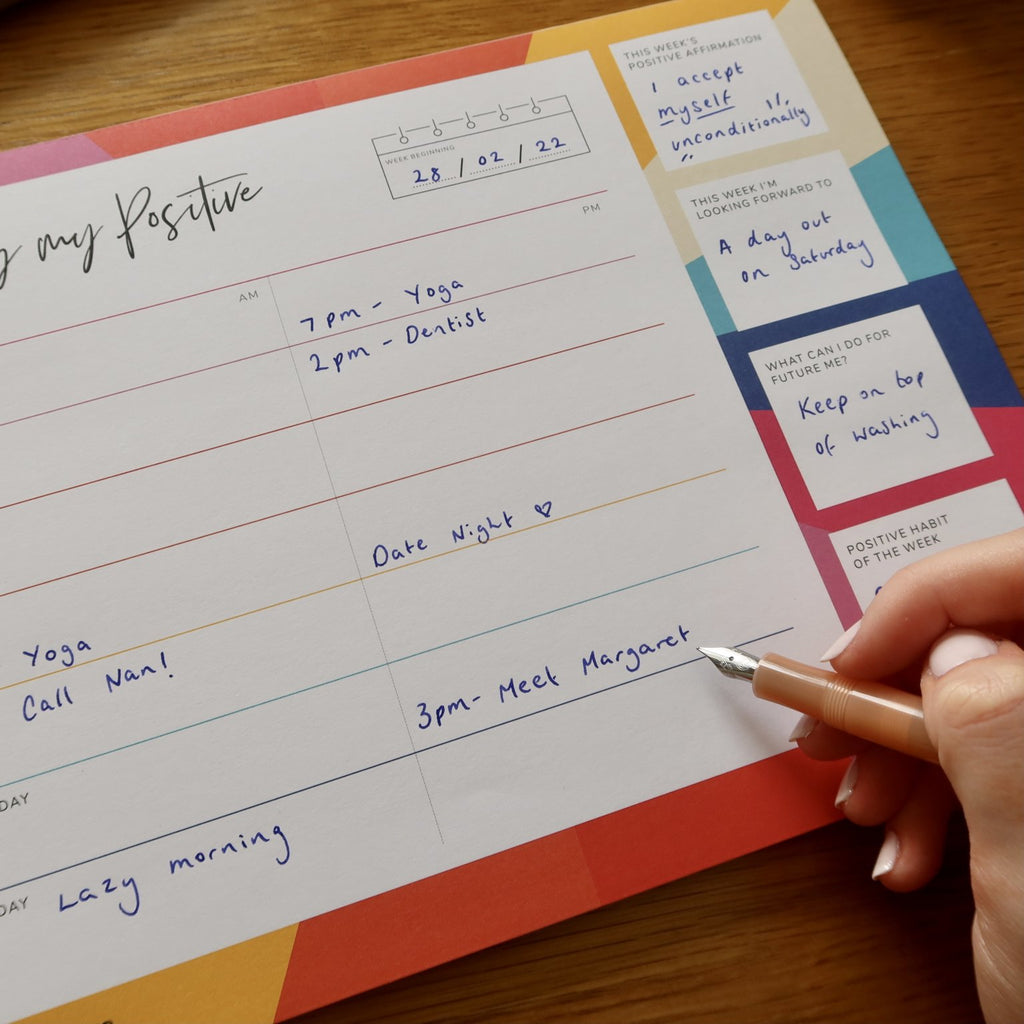 my Positive
WEEK BEGINNING
28 / 02 / 22
AM
PM
7pm - Yoga
2pm - Dentist
Date Night ♡
Yoga
Call Nan!
3pm - Meet Margaret
DAY
Lazy morning
DAY
THIS WEEK'S
POSITIVE AFFIRMATION
I accept
myself
unconditionally
THIS WEEK I'M
LOOKING FORWARD TO
A day out
on Saturday
WHAT CAN I DO FOR
FUTURE ME?
Keep on top
of washing
POSITIVE HABIT
OF THE WEEK